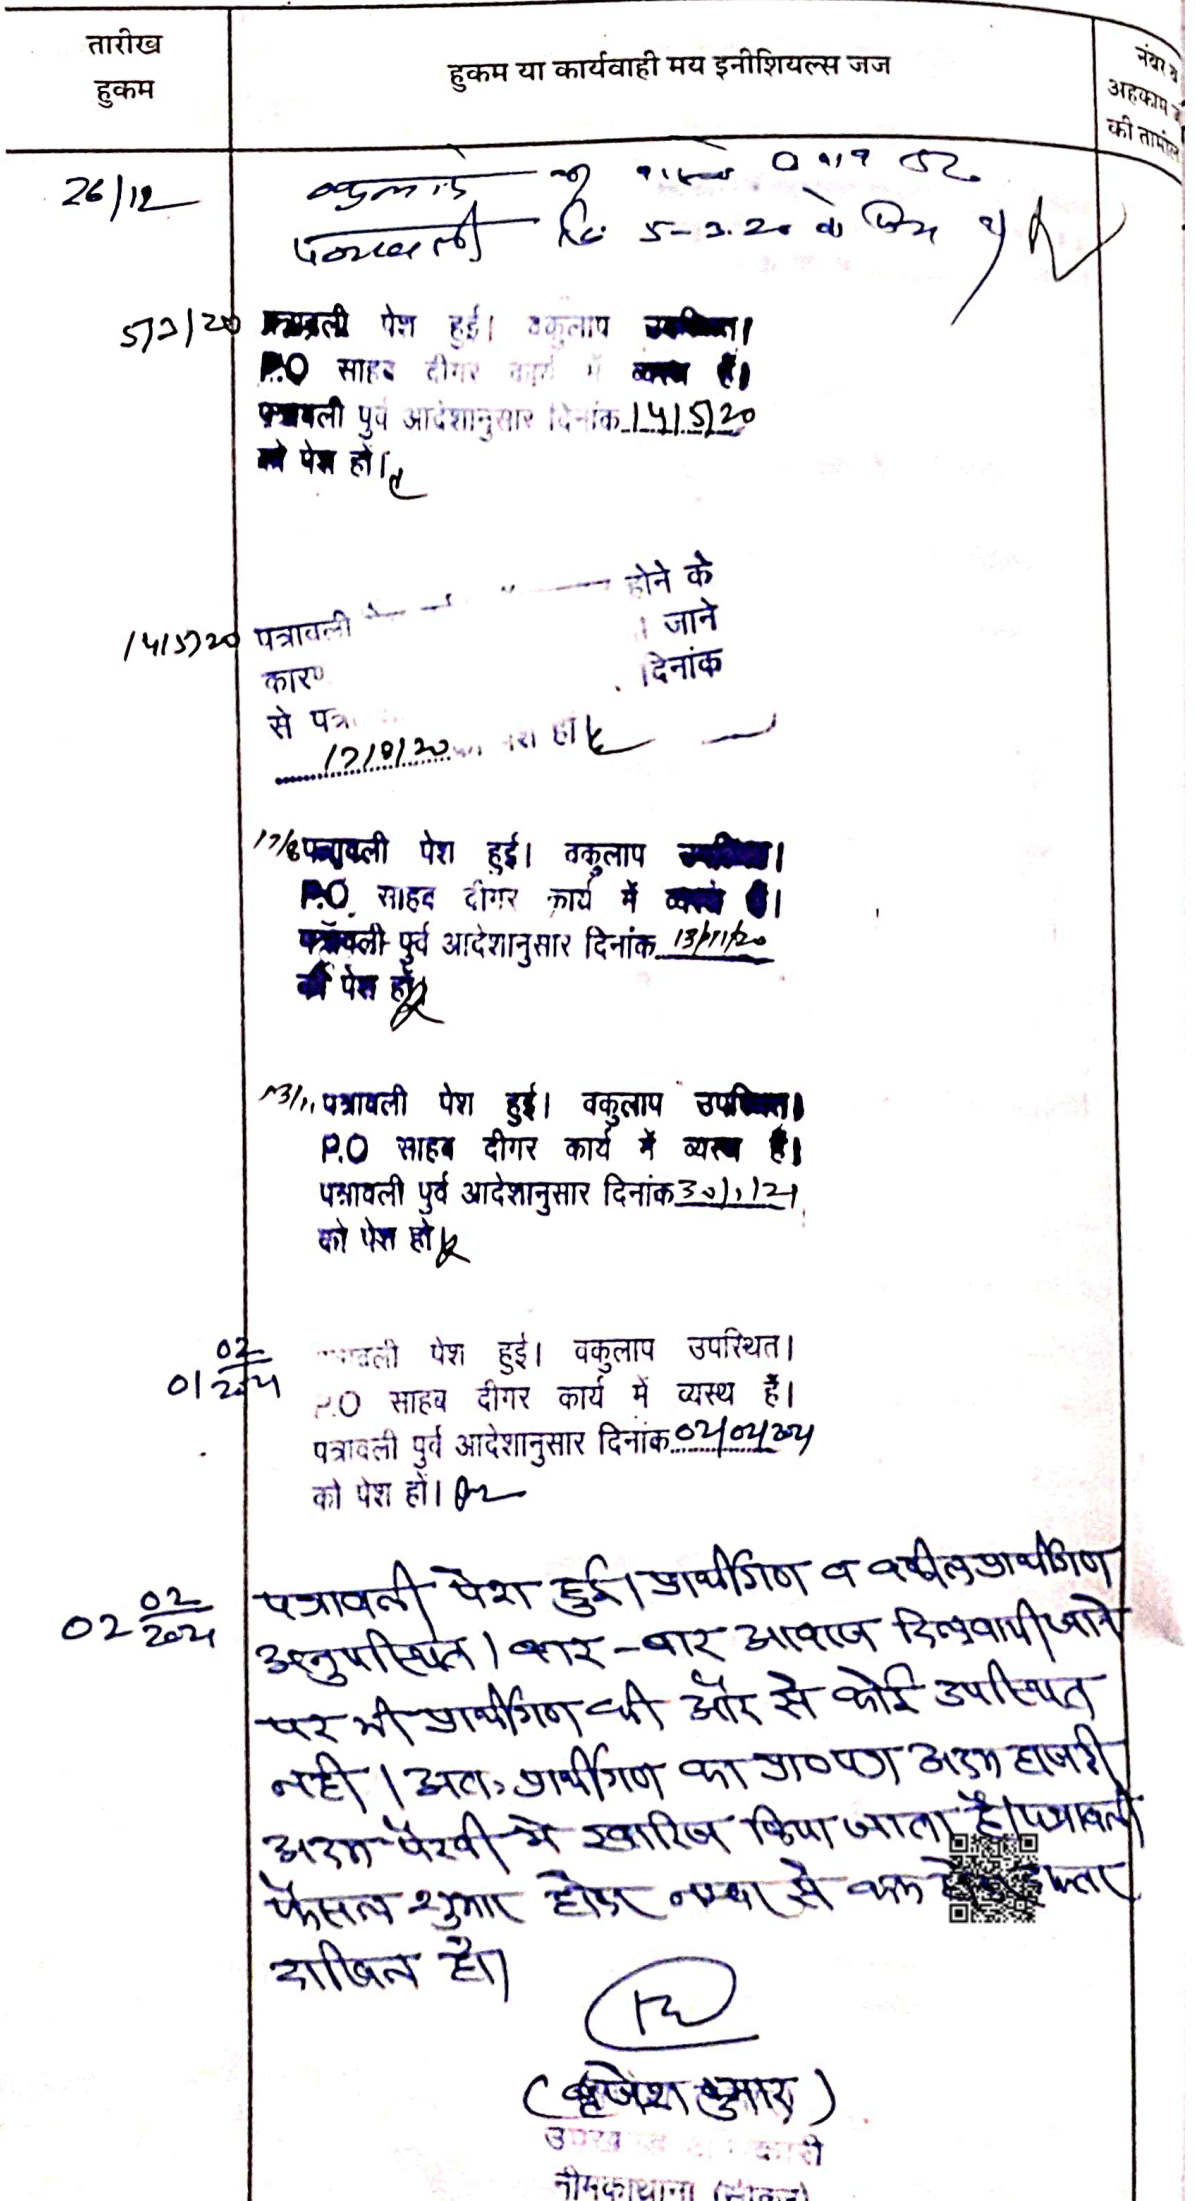 तारीख
हुकम
हुकम या कार्यवाही मय इनीशियल्स जज
नंबर व
अहकाम
की तामील
26/12
5-3-20 को
5/3/20 पत्रावली पेश हुई। वकुलाप उपस्थित।
P.O साहब दीगर कार्य में व्यस्थ हैं।
पत्रावली पुर्व आदेशानुसार दिनांक 14/5/20
को पेश हों।
14/5/20 पत्रावली होने के
जाने
दिनांक
से
17/8/20
17/8 पत्रावली पेश हुई। वकुलाप उपस्थित।
P.O. साहब दीगर कार्य में व्यस्थ हैं।
पत्रावली पुर्व आदेशानुसार दिनांक 13/11/20
को पेश हों।
13/11 पत्रावली पेश हुई। वकुलाप उपस्थित।
P.O साहब दीगर कार्य में व्यस्थ हैं।
पत्रावली पुर्व आदेशानुसार दिनांक 30/1/21
को पेश हों।
01 02/2021 पत्रावली पेश हुई। वकुलाप उपस्थित।
P.O साहब दीगर कार्य में व्यस्थ हैं।
पत्रावली पुर्व आदेशानुसार दिनांक 02/02/2021
को पेश हों।
02 02/2021 पत्रावली पेश हुई। प्रार्थीगण व वकील प्रार्थीगण
अनुपस्थित। बार-बार आवाज दिलवायी जाने
पर भी प्रार्थीगण की और से कोई उपस्थित
नही। अतः प्रार्थीगण का प्रा०पत्र अदम हाजरी
अदम पैरवी मे खारिज किया जाता है। पत्रावली
फैसल शुमार होकर नम्बर से कम दफ्तर
दाखिल हो।
(बृजेश कुमार)
उपखण्ड अधिकारी
नीमकाथाना (सीकर)